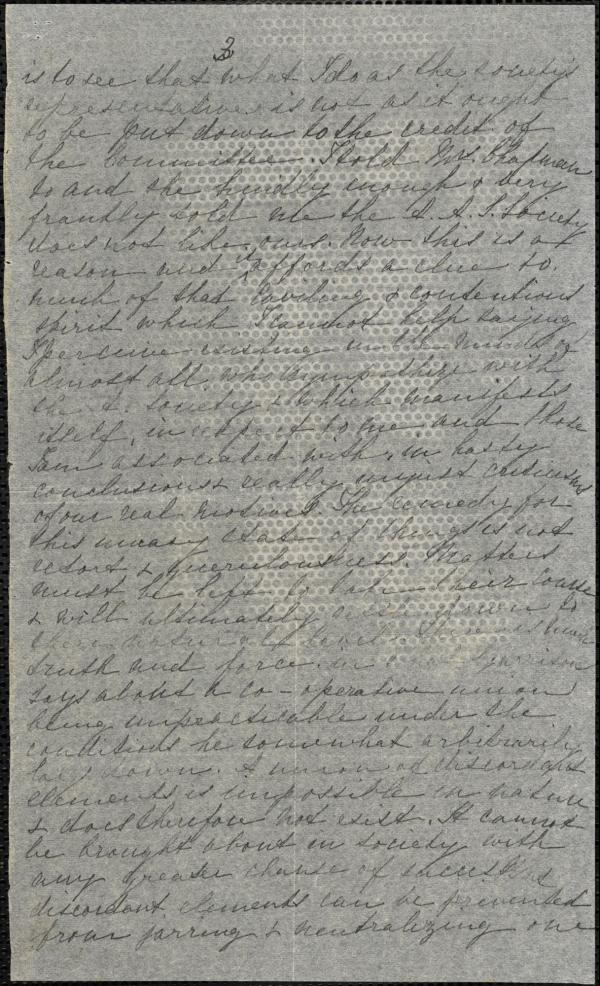 3
is to see that what I do as the society's
representative is not as it ought
to be put down to the credit of
the Committee. I told Mrs. Chapman
so and she kindly enough & very
frankly told me the A. A. S. Society
does not like ours. Now this is a
reason and it affords a clue to
much of that caviling & contentious
spirit which I cannot help saying
I perceive existing in the minds of
almost all who sympathize with
the A. Society & which manifests
itself, in respect to me and those
I am associated with, in hasty
conclusions & really unjust criticisms
of our real motives. The remedy for
this uneasy state of things is not
retort & querulousness. Matters
must be left to take their course
& will ultimately down to
their natural level. There is much
truth and force in Garrison
says about a co-operative union
being unpracticable under the
conditions he somewhat arbitrarily
lays down. A union of discordant
elements is impossible in nature
& does therefore not exist. It cannot
be brought about in society with
any greater chance of success
discordant elements can be prevented
from jarring & neutralizing one